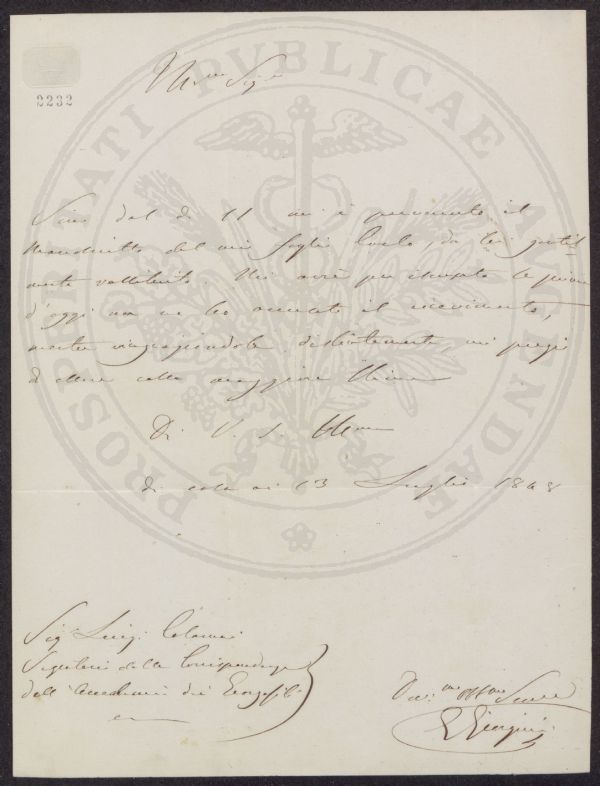 2232
PROSPERITATI PUBLICAE AUGENDAE
Ill.mo Sig.re
Sino dal dì 11 mi è pervenuto il
Manoscritto del mio figlio Carlo, da Lei gentil-
mente
d'oggi non ne ho accusato il ricevimento,
mentre ringraziandola distintamente, mi pregio
di essere colla maggiore stima
Di V. S. Ill.ma
di casa ai 13 Luglio 1848
Sig. Luigi Calamai
Segretario della Corrispondenza
dell'Accademia dei Georgofili
Dev.mo Obb.mo Serv.e
Giorgini